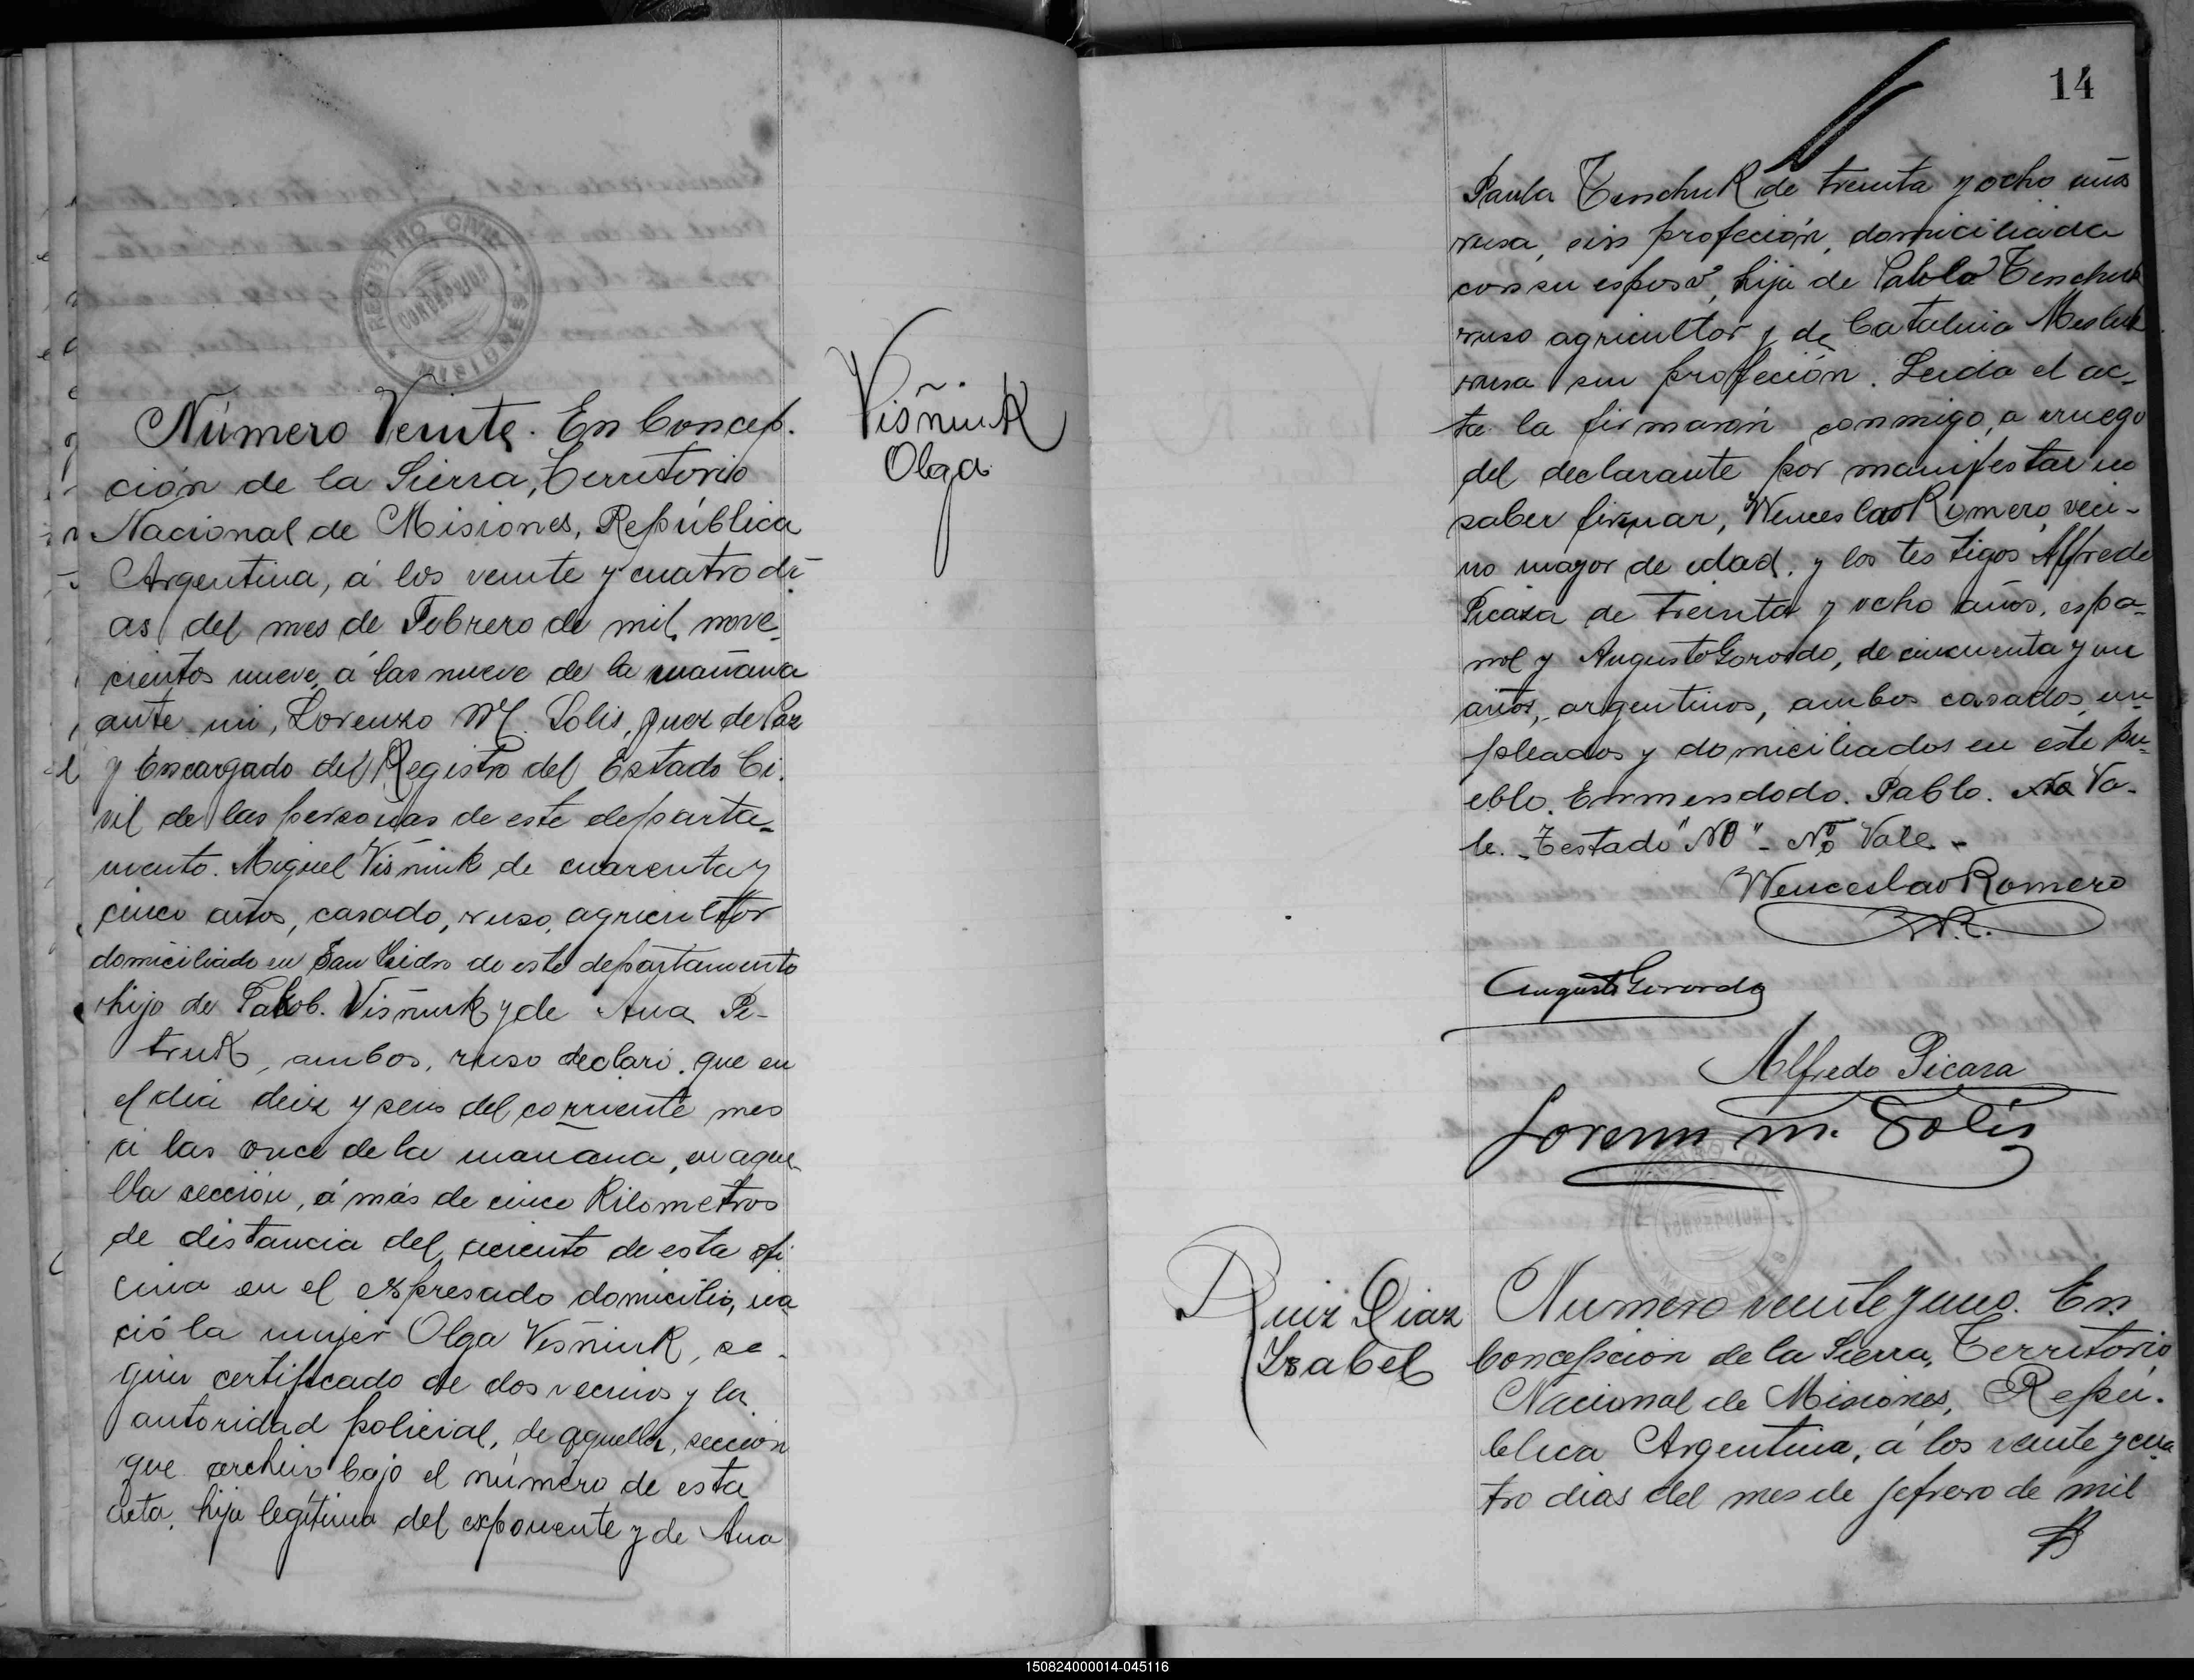 REGISTRO CIVIL
CONCEPCION
MISIONES
Número Veinte. En Concep.
ción de la Sierra, Territorio
Nacional de Misiones, República
Argentina, á los veinte y cuatro di-
as del mes de Febrero de mil nove-
cientos nueve, á las nueve de la mañana
ante mi, Lorenzo M. Solis, Juez de Paz
y Encargado del Registro del Estado Ci.
vil de las personas de este departa-
mento. Miguel Visñiuk de cuarenta y
cinco años, casado, ruso, agricultor
domiciliado en San Isidro de este departamento
hijo de Jakob. Visñiuk y de Ana Pe-
truk, ambos, ruso declaró. que en
el dia deiz y seis del corriente mes
á las once de la mañana, en aque-
lla sección, á más de cinco Kilometros
de distancia del aciento de esta ofi
cina en el expresado domicilio, na
ció la mujer Olga Visñiuk, se-
gún certificado de dos vecinos y la
autoridad policial, de aquella, sección
que archivo bajo el número de esta
acta. hija legítima del exponente y de Ana
Visñiuk
Olga
14
Paula Tenchuk de treinta y ocho años
rusa, sin profeción, domiciliada
con su esposo, hija de Pablo Tenchuk
ruso agricultor y de Catalina
rusa sin profeción. Leida el ac-
ta la firmarón conmigo, a ruego
del declarante por manifestar no
saber firmar, Wenceslao Romero, veci-
no mayor de edad, y los testigos Alfredo
Picaza de treinta y ocho años, espa-
ñol y Augusto Gorordo, de cincuenta y un
años, argentinos, ambos casados, em-
pleados y domiciliados en este pu-
eblo. Enmendodo. Pablo. Va-
le. Testado "NO" - No Vale. -
Wenceslao Romero
W.R.
Augusto Gorordo
Alfredo Picaza
Lorenzo M. Solis
Ruiz Diaz
Ysabel
Numero veinte y uno. En
Concepcion de la Sierra, Territorio
Nacional de Misiones, Repú.
blica Argentina, á los veinte y cua
tro dias del mes de febrero de mil
150824000014-045116